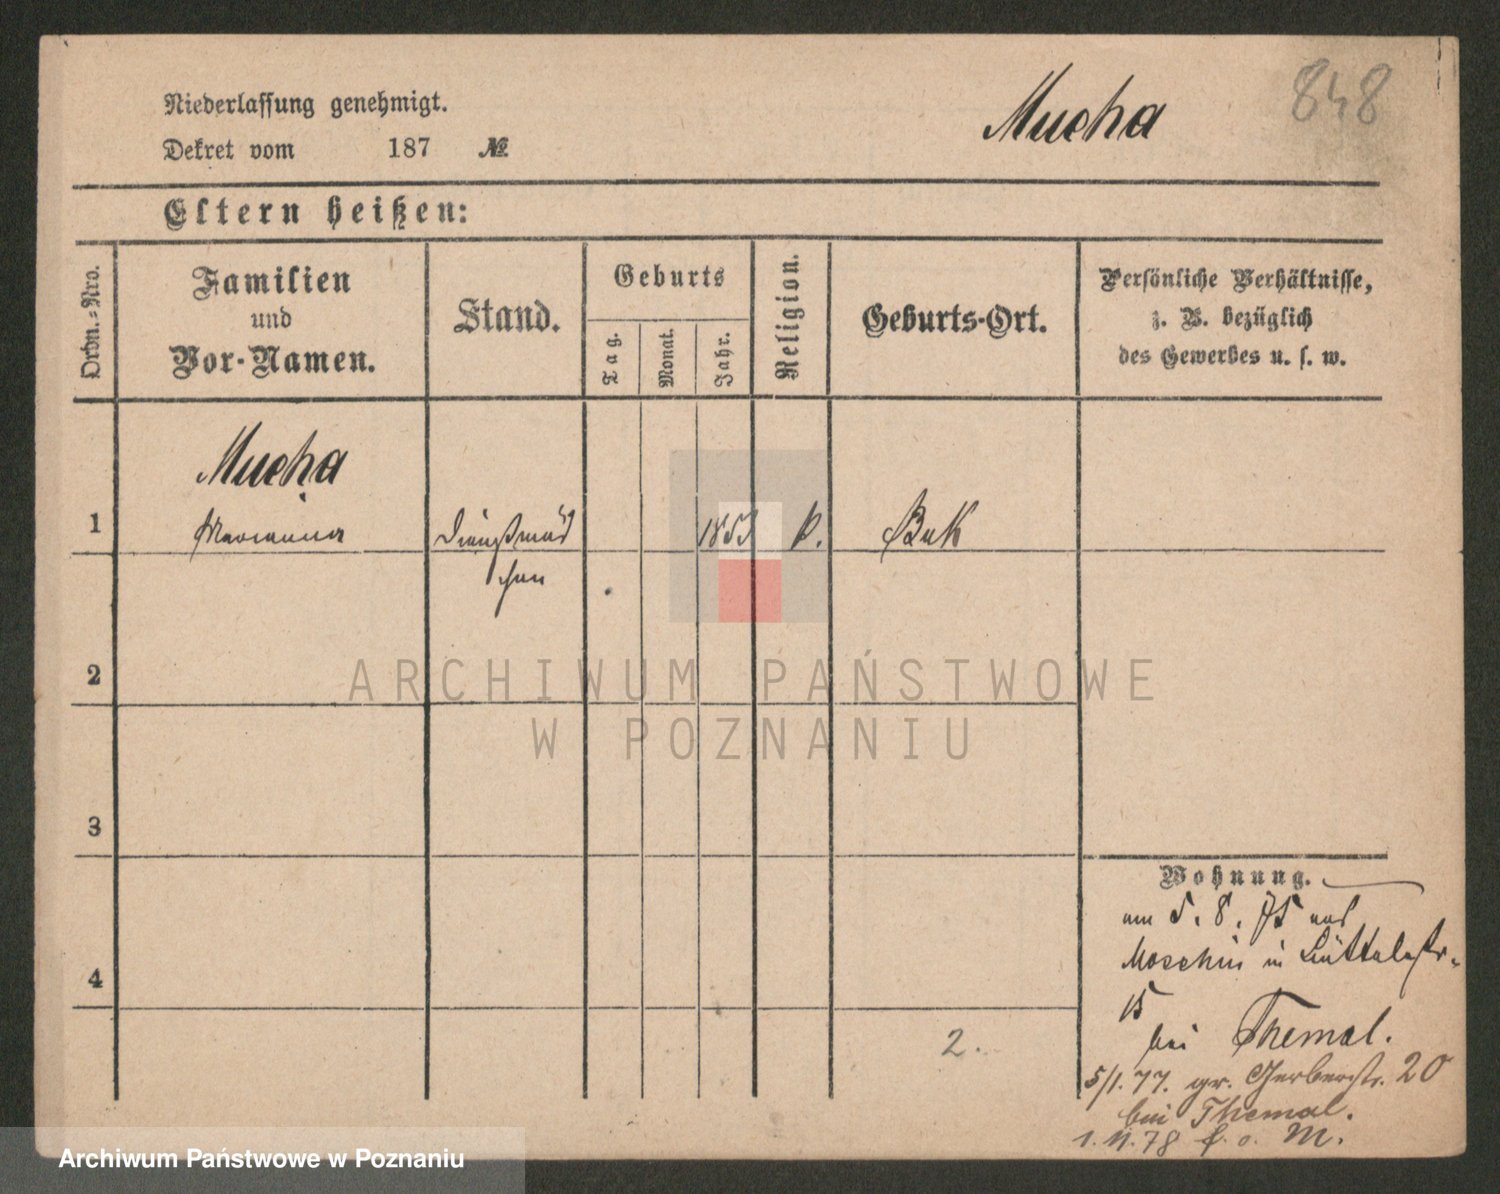 848
Mucha
Niederlassung genehmigt.
Dekret vom 187 №
Eltern heißen:
Ordn.-Nro.
Familien
und
Vor-Namen.
Stand.
Geburts
Tag.
Monat.
Jahr.
Religion.
Geburts-Ort.
Persönliche Verhältnisse,
z. B. bezüglich
des Gewerbes u. s. w.
Mucha
1 Marianna Dienstmäd 1853 k. Buk
chen
2
ARCHIWUM PAŃSTWOWE
W POZNANIU
3
Wohnung.
am 5. 8. 75 aus
Moschin in
4
15
bei Themal.
2.
5/1. 77. gr. Gerberstr. 20
bei Themal.
1. 11. 78 o. M.
Archiwum Państwowe w Poznaniu